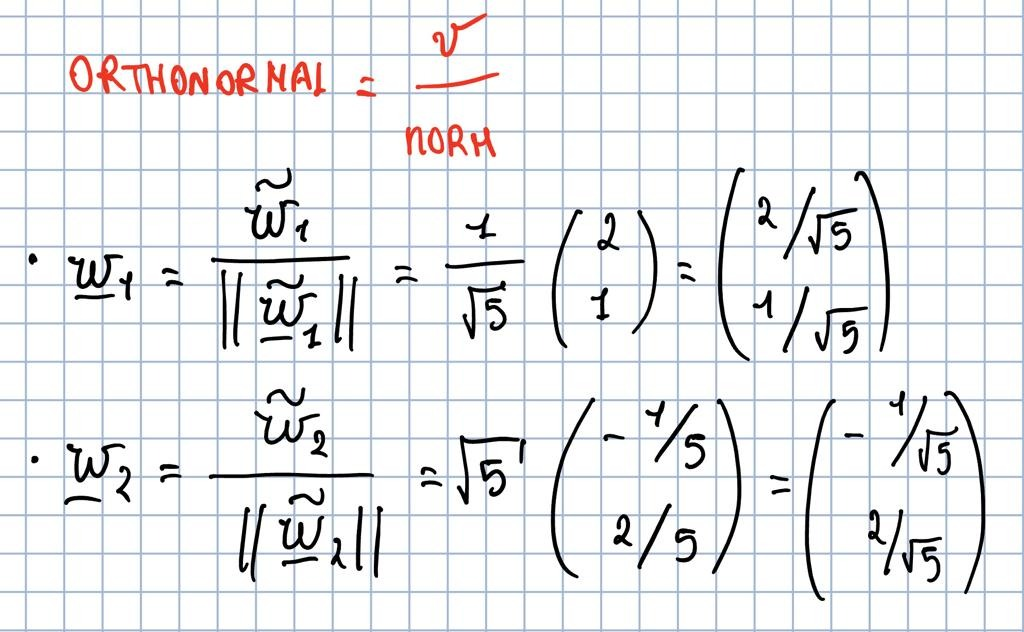 ORTHONORMAL = v / NORM
· w₁ = w̃₁ / ||w̃₁|| = 1/√5 (2 1) = (2/√5 1/√5)
· w₂ = w̃₂ / ||w̃₂|| = √5 (-1/5 2/5) = (-1/√5 2/√5)